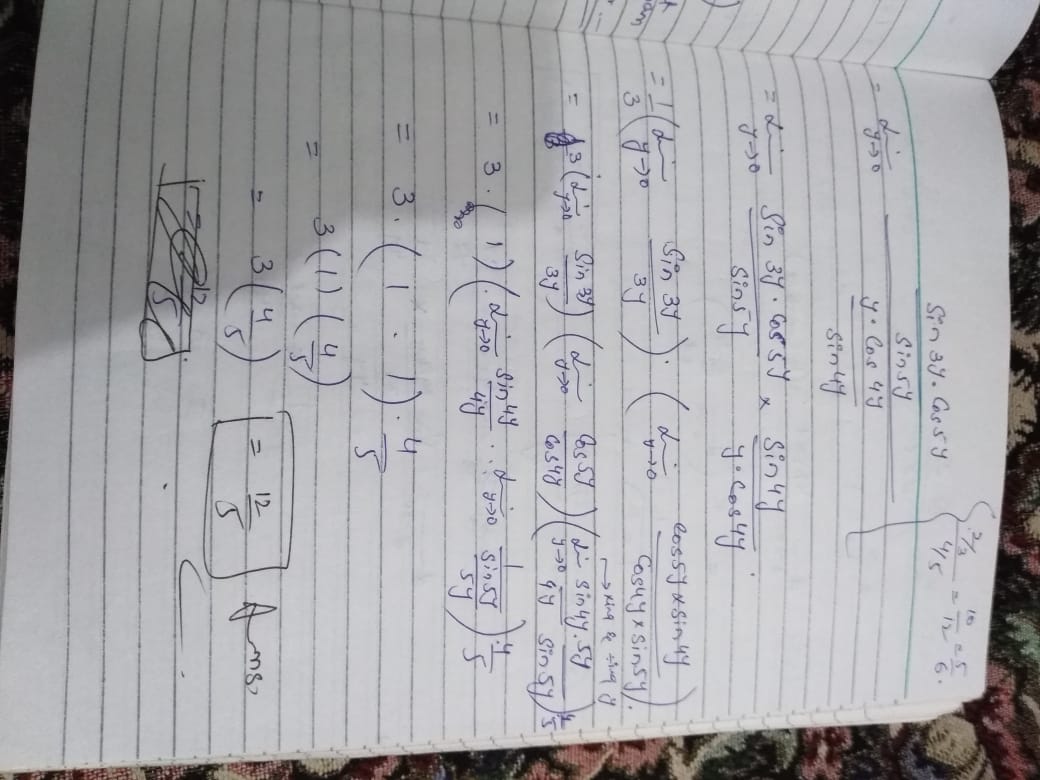 2/3 / 4/5 = 10/12 = 5/6.
Sin 3y . Cos 5y
Sin 5y
= Lim y→0
y . Cos 4y
Sin 4y
= Lim y→0 Sin 3y . Cos 5y / Sin 5y × Sin 4y / y . Cos 4y .
= 1/3 ( Lim y→0 Sin 3y / 3y ) . ( Lim y→0 Cos 5y × Sin 4y / Cos 4y × Sin 5y ) .
→ xing & ÷ing y
= 3 ( Lim y→0 Sin 3y / 3y ) ( Lim y→0 Cos 5y / Cos 4y ) ( Lim y→0 Sin 4y . 5y / 4y Sin 5y ) 4/5
= 3 . ( 1 ) ( Lim y→0 Sin 4y / 4y . Lim y→0 1 / Sin 5y / 5y ) . 4/5
= 3 . ( 1 . 1 ) . 4/5
= 3 ( 1 ) ( 4/5 )
= 3 ( 4/5 ) = 12/5 Ams.